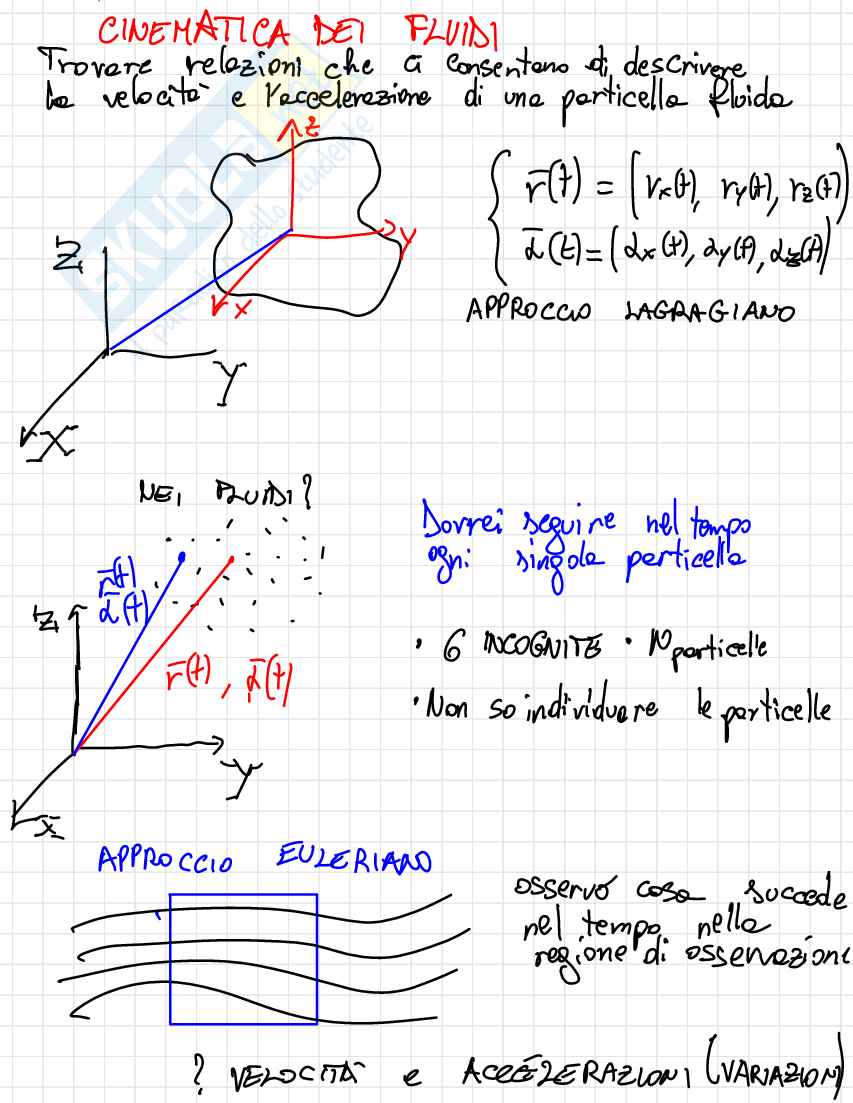 CINEMATICA DEI FLUIDI
Trovare relazioni che ci consentano di descrivere
la velocità e l'accelerazione di una particella fluida
SKUOLA.net
Z
Z
Y
X
Y
X
r̄(t) = (rx(t), ry(t), rz(t))
ᾱ(t) = (αx(t), αy(t), αz(t))
APPROCCIO LAGRAGIANO
NEI FLUIDI?
Dovrei seguire nel tempo
ogni singola particella
r̄(t)
ᾱ(t)
Z
r̄(t), ᾱ(t)
Y
X
· 6 INCOGNITE · N particelle
· Non so individuare le particelle
APPROCCIO EULERIANO
osservo cosa succede
nel tempo nella
regione di osservazione
? VELOCITÀ e ACCELERAZIONI (VARIAZIONI)